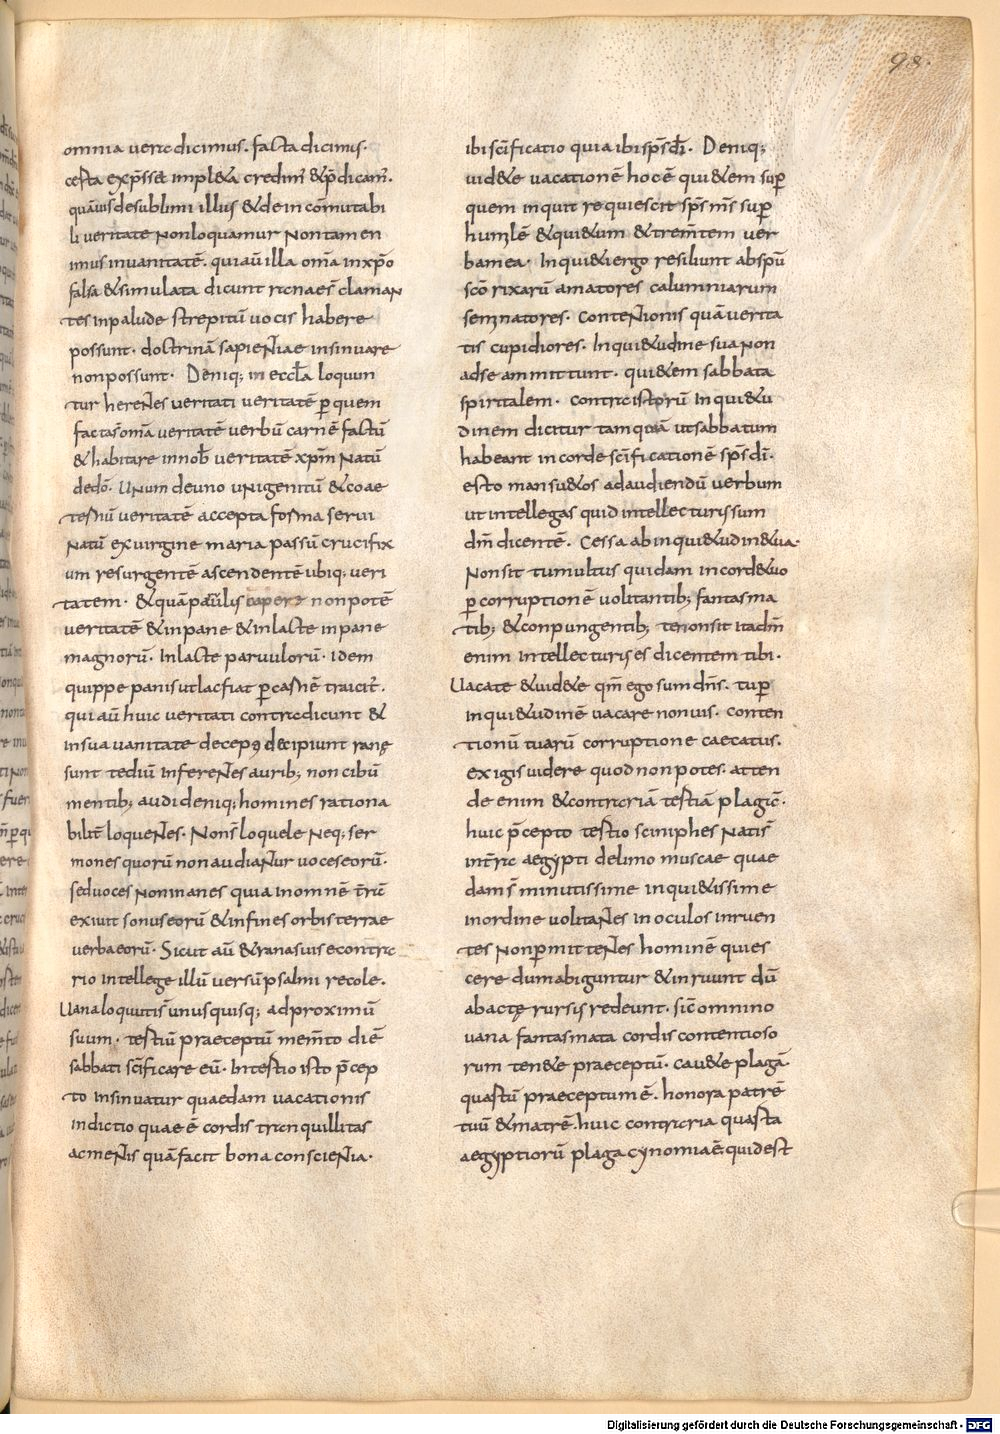 98.
omnia vere dicimus. facta dicimus.
cesta exp̄ss& impl&a credim̄ &p̄dicam̄.
quāuis de sublimi illius & de incōmutabi
li ueritate non loquamur non tamen
imus in uanitatē. qui aū illa om̄a in xp̄o
falsa & simulata dicunt ranaeś claman
tes in palude strepitū uocis habere
possunt. doctrinā sapientiae insinuare
non possunt. Deniq; in eccl̄a loquun
tur herentes ueritati ueritatē p̱ quem
facta s̄ om̄a ueritatē uerbū carnē factū
& habitare in nob̄ ueritatē xp̄m natū
de dō. unum de uno unigenitū & coae
ternū ueritatē accepta forma serui
natū ex uirgine maria passū crucifix
um resurgentē ascendentē ubiq; ueri
tatem. & quā paruulis capere non potē
ueritatē & in pane & in lacte in pane
magnorū. In lacte paruulorū. Idem
quippe panis ut lac fiat p̱ carnē traicit̄.
qui aū huic ueritati contradicunt &
in sua uanitate decepti decipiunt ranę
sunt tediū inferentes aurib; non cibū
mentib; audi deniq; homines rationa
bilit̄ loquentes. Non s̄ loquele neq; ser
mones quorū non audiantur uoces eorū.
sed uoces non inanes quia in omnē t̄rā
exiuit sonus eorū & in fines orbis terrae
uerba eorū. Sicut aū & rana suis e contra
rio intellege illū uersū psalmi recole.
Uana loquuti s̄ unusquisq; ad proximū
suum. tertiū praeceptū mem̄to diē
sabbati sc̄ificare eū. In tertio isto p̄cep
to insinuatur quaedam uacationis
indictio quae ē cordis tranquillitas
ac mentis quā facit bona conscientia.
ibi sc̄ificatio quia ibi sp̄s dī. Deniq;
uid&e uacationē hoc ē qui&em sup̱
quem inquit requiescit sp̄s m̄s sup̱
humilē & qui&um & trem̄tem uer
ba mea. Inqui&i ergo resiliunt ab sp̄ū
scō rixarū amatores calumniarum
seminatores. Contentionis quā uerita
tis cupidiores. Inqui&udine sua non
ad se ammittunt. qui&em sabbata
spiritalem. contra istorū inqui&u
dinem dicitur tamquā ut sabbatum
habeant in corde sc̄ificationē sp̄s dī.
esto mansu&os ad audiendū uerbum
ut intellegas quid intellecturis sum
dm̄ dicentē. Cessa ab inqui&udine tua.
Non sit tumultus quidam in corde tuo
p̱ corruptionē uolitantib; fantasma
tib; & conpungentib; te non sit ita dm̄
enim intellecturis es dicentem tibi.
Uacate & uid&e qm̄ ego sum dn̄s. tu p̱
inqui&udinē uacare non uis. conten
tionū tuarū corruptione caecatus.
exigis uidere quod non potes. atten
de enim & contrariā tertiā plagā.
huic p̄cepto tertio sciniphes nati s̄
in t̄ra aegypti de limo muscae quae
dam s̄ minutissime inqui&issime
in ordine uolitantes in oculos inruen
tes non p̱mittentes hominē quies
cere dum abiguntur & inruunt dū
abactę rursis redeunt. sic̄ omnino
uana fantasmata cordis contentioso
rum ten&e praeceptū. cau&e plagā.
quartū praeceptum ē. honora patrē
tuū & matrē. huic contraria quarta
aegyptiorū plaga cynomia ē. quid est
Digitalisierung gefördert durch die Deutsche Forschungsgemeinschaft - DFG